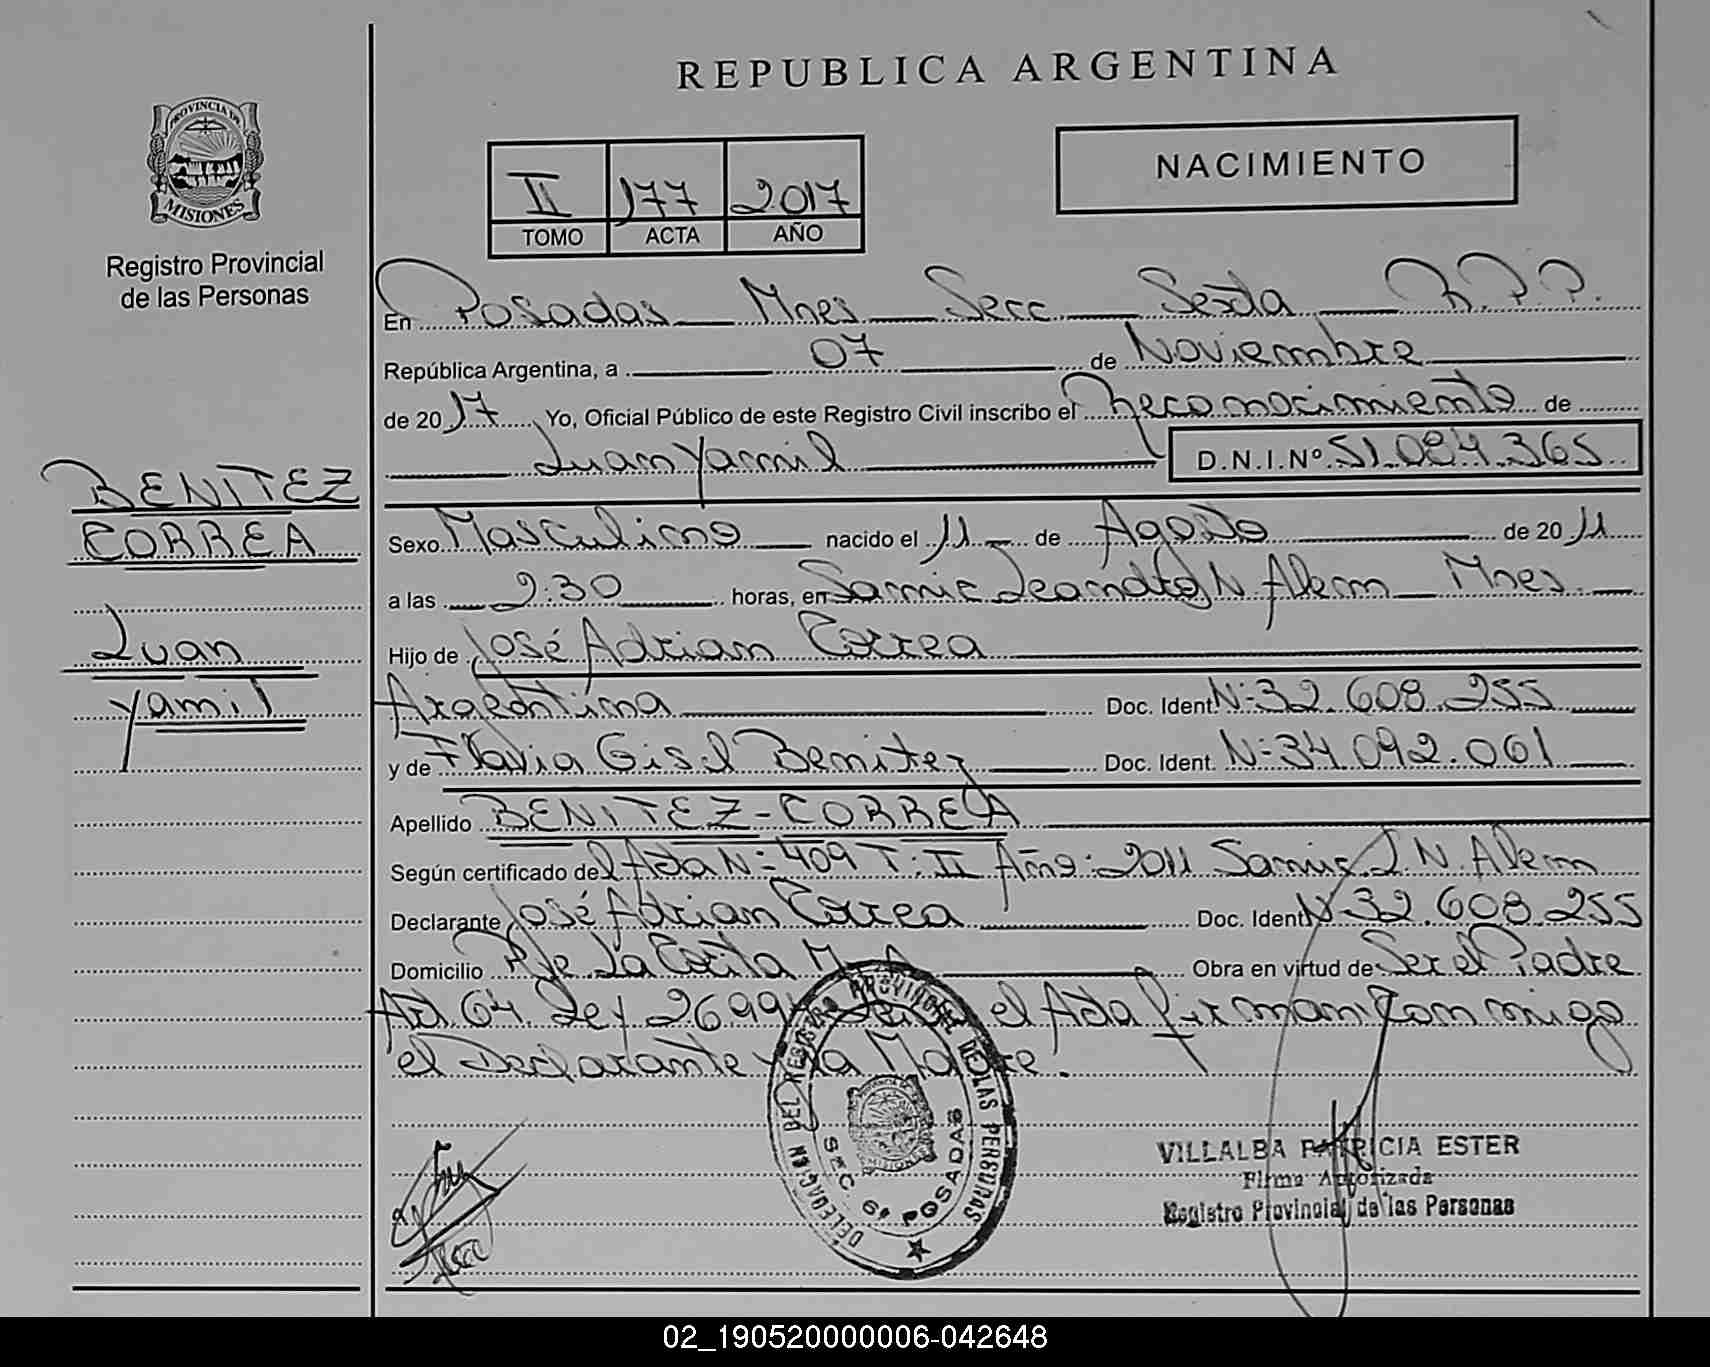 REPUBLICA ARGENTINA
PROVINCIA DE
MISIONES
Registro Provincial
de las Personas
II 177 2017
TOMO ACTA AÑO
NACIMIENTO
BENITEZ
CORREA
Luan
Yamil
En Posadas Mnes Secc Sexta R.P.P.
República Argentina, a 07 de Noviembre
de 2017 Yo, Oficial Público de este Registro Civil inscribo el Reconocimiento de
Luan Yamil D.N.I.Nº 51.084.365
Sexo Masculino nacido el 11 de Agosto de 2011
a las 2:30 horas, en Samic Leandro N. Alem Mnes.
Hijo de José Adrian Correa
Argentina Doc. Ident N- 32.608.255
y de Flavia Gisel Benitez Doc. Ident. N- 34.092.061
Apellido BENITEZ - CORREA
Según certificado del Acta N- 409 T: II Año: 2011 Samic L.N. Alem
Declarante José Adrian Correa Doc. Ident N- 32.608.255
Domicilio Pje La Cocita Obra en virtud de Ser el Padre
Art 64. Ley el Acta firman conmigo
el Declarante y la Madre.
DELEGACIÓN DEL REGISTRO PROVINCIAL DE LAS PERSONAS
SEC. 6ª POSADAS
VILLALBA PATRICIA ESTER
Firma Autorizada
Registro Provincial de las Personas
02_190520000006-042648